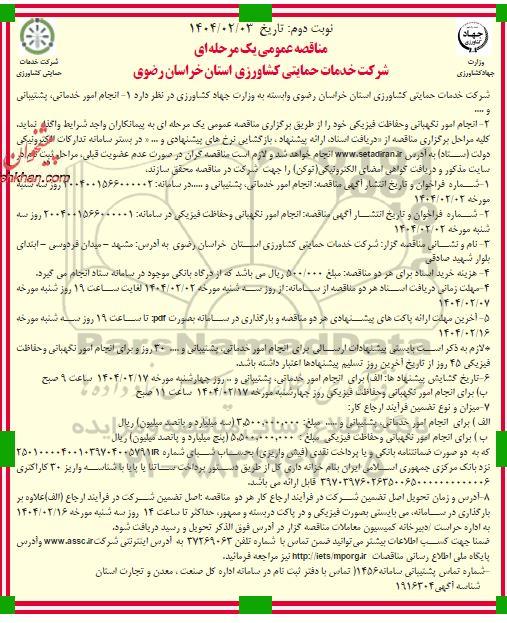 نوبت دوم: تاریخ ۱۴۰۴/۰۲/۰۳
مناقصه عمومی یک مرحله ای
شرکت خدمات حمایتی کشاورزی استان خراسان رضوی
وزارت
جهاد کشاورزی
شرکت خدمات
حمایتی کشاورزی
شرکت خدمات حمایتی کشاورزی استان خراسان رضوی وابسته به وزارت جهاد کشاورزی در نظر دارد ۱- انجام امور خدماتی، پشتیبانی
و ....
۲- انجام امور نگهبانی وحفاظت فیزیکی خود را از طریق برگزاری مناقصه عمومی یک مرحله ای به پیمانکاران واجد شرایط واگذار نماید.
کلیه مراحل برگزاری مناقصه از «دریافت اسناد، ارائه پیشنهاد ، بازگشایی نرخ های پیشنهادی و ... » در بستر سامانه تدارکات الکترونیکی
دولت (ستاد) به آدرس www.setadiran.ir انجام خواهد شد و لازم است مناقصه گران در صورت عدم عضویت قبلی، مراحل ثبت نام در
سایت مذکور و دریافت گواهی امضای الکترونیکی(توکن) را جهت شرکت در مناقصه محقق سازند.
۱-شماره فراخوان و تاریخ انتشار آگهی مناقصه: انجام امور خدماتی، پشتیبانی و .....در سامانه: ۲۰۰۴۰۰۱۵۶۶۰۰۰۰۰۲ روز سه شنبه
مورخه ۱۴۰۴/۰۲/۰۲
۲-شماره فراخوان و تاریخ انتشار آگهی مناقصه: انجام امور نگهبانی وحفاظت فیزیکی در سامانه: ۲۰۰۴۰۰۱۵۶۶۰۰۰۰۰۱ روز سه
شنبه مورخه ۱۴۰۴/۰۲/۰۲
۳- نام و نشانی مناقصه گزار: شرکت خدمات حمایتی کشاورزی استان خراسان رضوی به آدرس: مشهد – میدان فردوسی – ابتدای
بلوار شهید صادقی
۴- هزینه خرید اسناد برای هر دو مناقصه: مبلغ ۵۰۰/۰۰۰ ریال می باشد که از درگاه بانکی موجود در سامانه ستاد انجام می گیرد.
۴-مهلت زمانی دریافت اسناد هر دو مناقصه از سامانه: از روز سه شنبه مورخه ۱۴۰۴/۰۲/۰۲ لغایت ساعت ۱۹ روز یکشنبه مورخه
۱۴۰۴/۰۲/۰۷
۵-آخرین مهلت ارائه پاکت های پیشنهادی هر دو مناقصه و بارگذاری در سامانه بصورت pdf: تا ساعت ۱۹ روز سه شنبه مورخه
۱۴۰۴/۰۲/۱۶
*لازم به ذکر است بایستی پیشنهادات ارسالی برای انجام امور خدماتی، پشتیبانی و .... ۳۰ روز و برای انجام امور نگهبانی وحفاظت
فیزیکی ۴۵ روز از تاریخ آخرین روز تسلیم پیشنهادها اعتبار داشته باشد.
۶-تاریخ گشایش پیشنهاد ها: الف) برای انجام امور خدماتی، پشتیبانی و ... روز چهارشنبه مورخه ۱۴۰۴/۰۲/۱۷ ساعت ۹ صبح
ب) برای انجام امور نگهبانی وحفاظت فیزیکی روز چهارشنبه مورخه ۱۴۰۴/۰۲/۱۷ ساعت ۱۱ صبح
۷-میزان و نوع تضمین فرآیند ارجاع کار:
الف ) برای انجام امور خدماتی، پشتیبانی و ..... مبلغ: ۳,۵۰۰,۰۰۰,۰۰۰ (سه میلیارد و پانصد میلیون) ریال
ب ) برای انجام امور نگهبانی وحفاظت فیزیکی مبلغ : ۵,۵۰۰,۰۰۰,۰۰۰ (پنج میلیارد و پانصد میلیون) ریال
که به دو صورت ضمانتنامه بانکی و یا پرداخت نقدی (فیش واریزی) بحساب شبای شماره
نزد بانک مرکزی جمهوری اسلامی ایران بنام خزانه داری کل از طریق دستور پرداخت ساتنا یا پایا با شناسه واریز ۳۰ کاراکتری
قابل ارائه می باشد.
۸-آدرس و زمان تحویل اصل تضمین شرکت در فرآیند ارجاع کار هر دو مناقصه :اصل تضمین شرکت در فرآیند ارجاع (الف)علاوه بر
بارگذاری در سامانه، می بایستی بصورت فیزیکی و در پاکت دربسته و ممهور، حداکثر تا ساعت ۱۴ روز سه شنبه مورخه ۱۴۰۴/۰۲/۱۶
به اداره حراست /دبیرخانه کمیسیون معاملات مناقصه گزار در آدرس فوق الذکر تحویل و رسید دریافت شود.
ضمنا جهت کسب اطلاعات بیشتر می توانید ضمن تماس با شماره تلفن ۳۷۲۶۹۰۶۳ به آدرس اینترنتی شرکت www.assc.ir وآدرس
پایگاه ملی اطلاع رسانی مناقصات http://iets/mporg.ir نیز مراجعه فرمائید.
-شماره تماس پشتیبانی سامانه۱۴۵۶( تماس با دفتر ثبت نام در سامانه اداره کل صنعت ، معدن و تجارت استان
شناسه آگهی۱۹۱۶۳۰۴